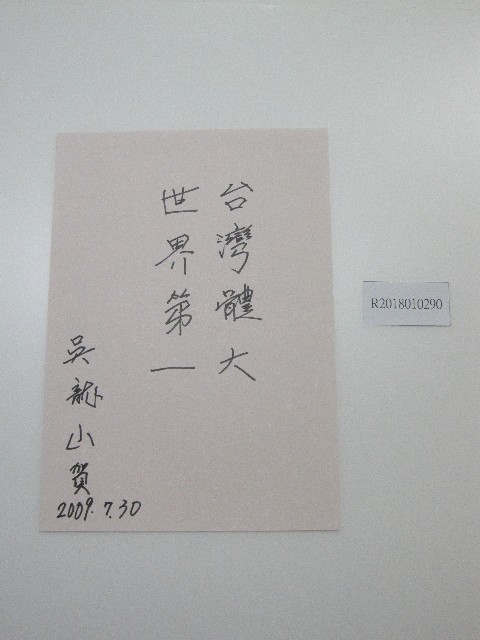 台灣體大
世界第一
吳龍山賀
2009.7.30
R2018010290